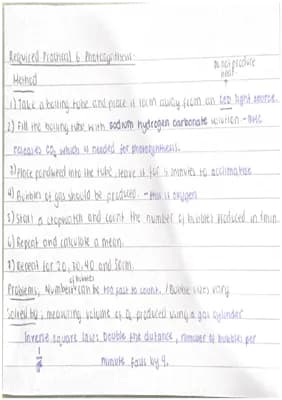 Required Practical 6 Photosynthesis.
Do not produce
heat
Method
1) Take a boiling tube and place it 10cm away from an LED light source.
2) Fill the boiling tube with sodium hydrogen carbonate solution - this
releases CO2 which is needed for photosynthesis.
3) Place pondweed into the tube, leave it for 5 minutes to acclimatise
4) Bubbles of gas should be produced. - this is oxygen
5) Start a stopwatch and count the number of bubbles produced in 1min.
6) Repeat and calculate a mean.
7) Repeat for 20, 30, 40 and 50cm.
of bubbles
Problems: Number can be too fast to count. / Bubble sizes vary
Solved by: measuring volume of O2 produced using a gas cylinder
Inverse square laws. Double the distance, number of bubbles per
minute falls by 4.